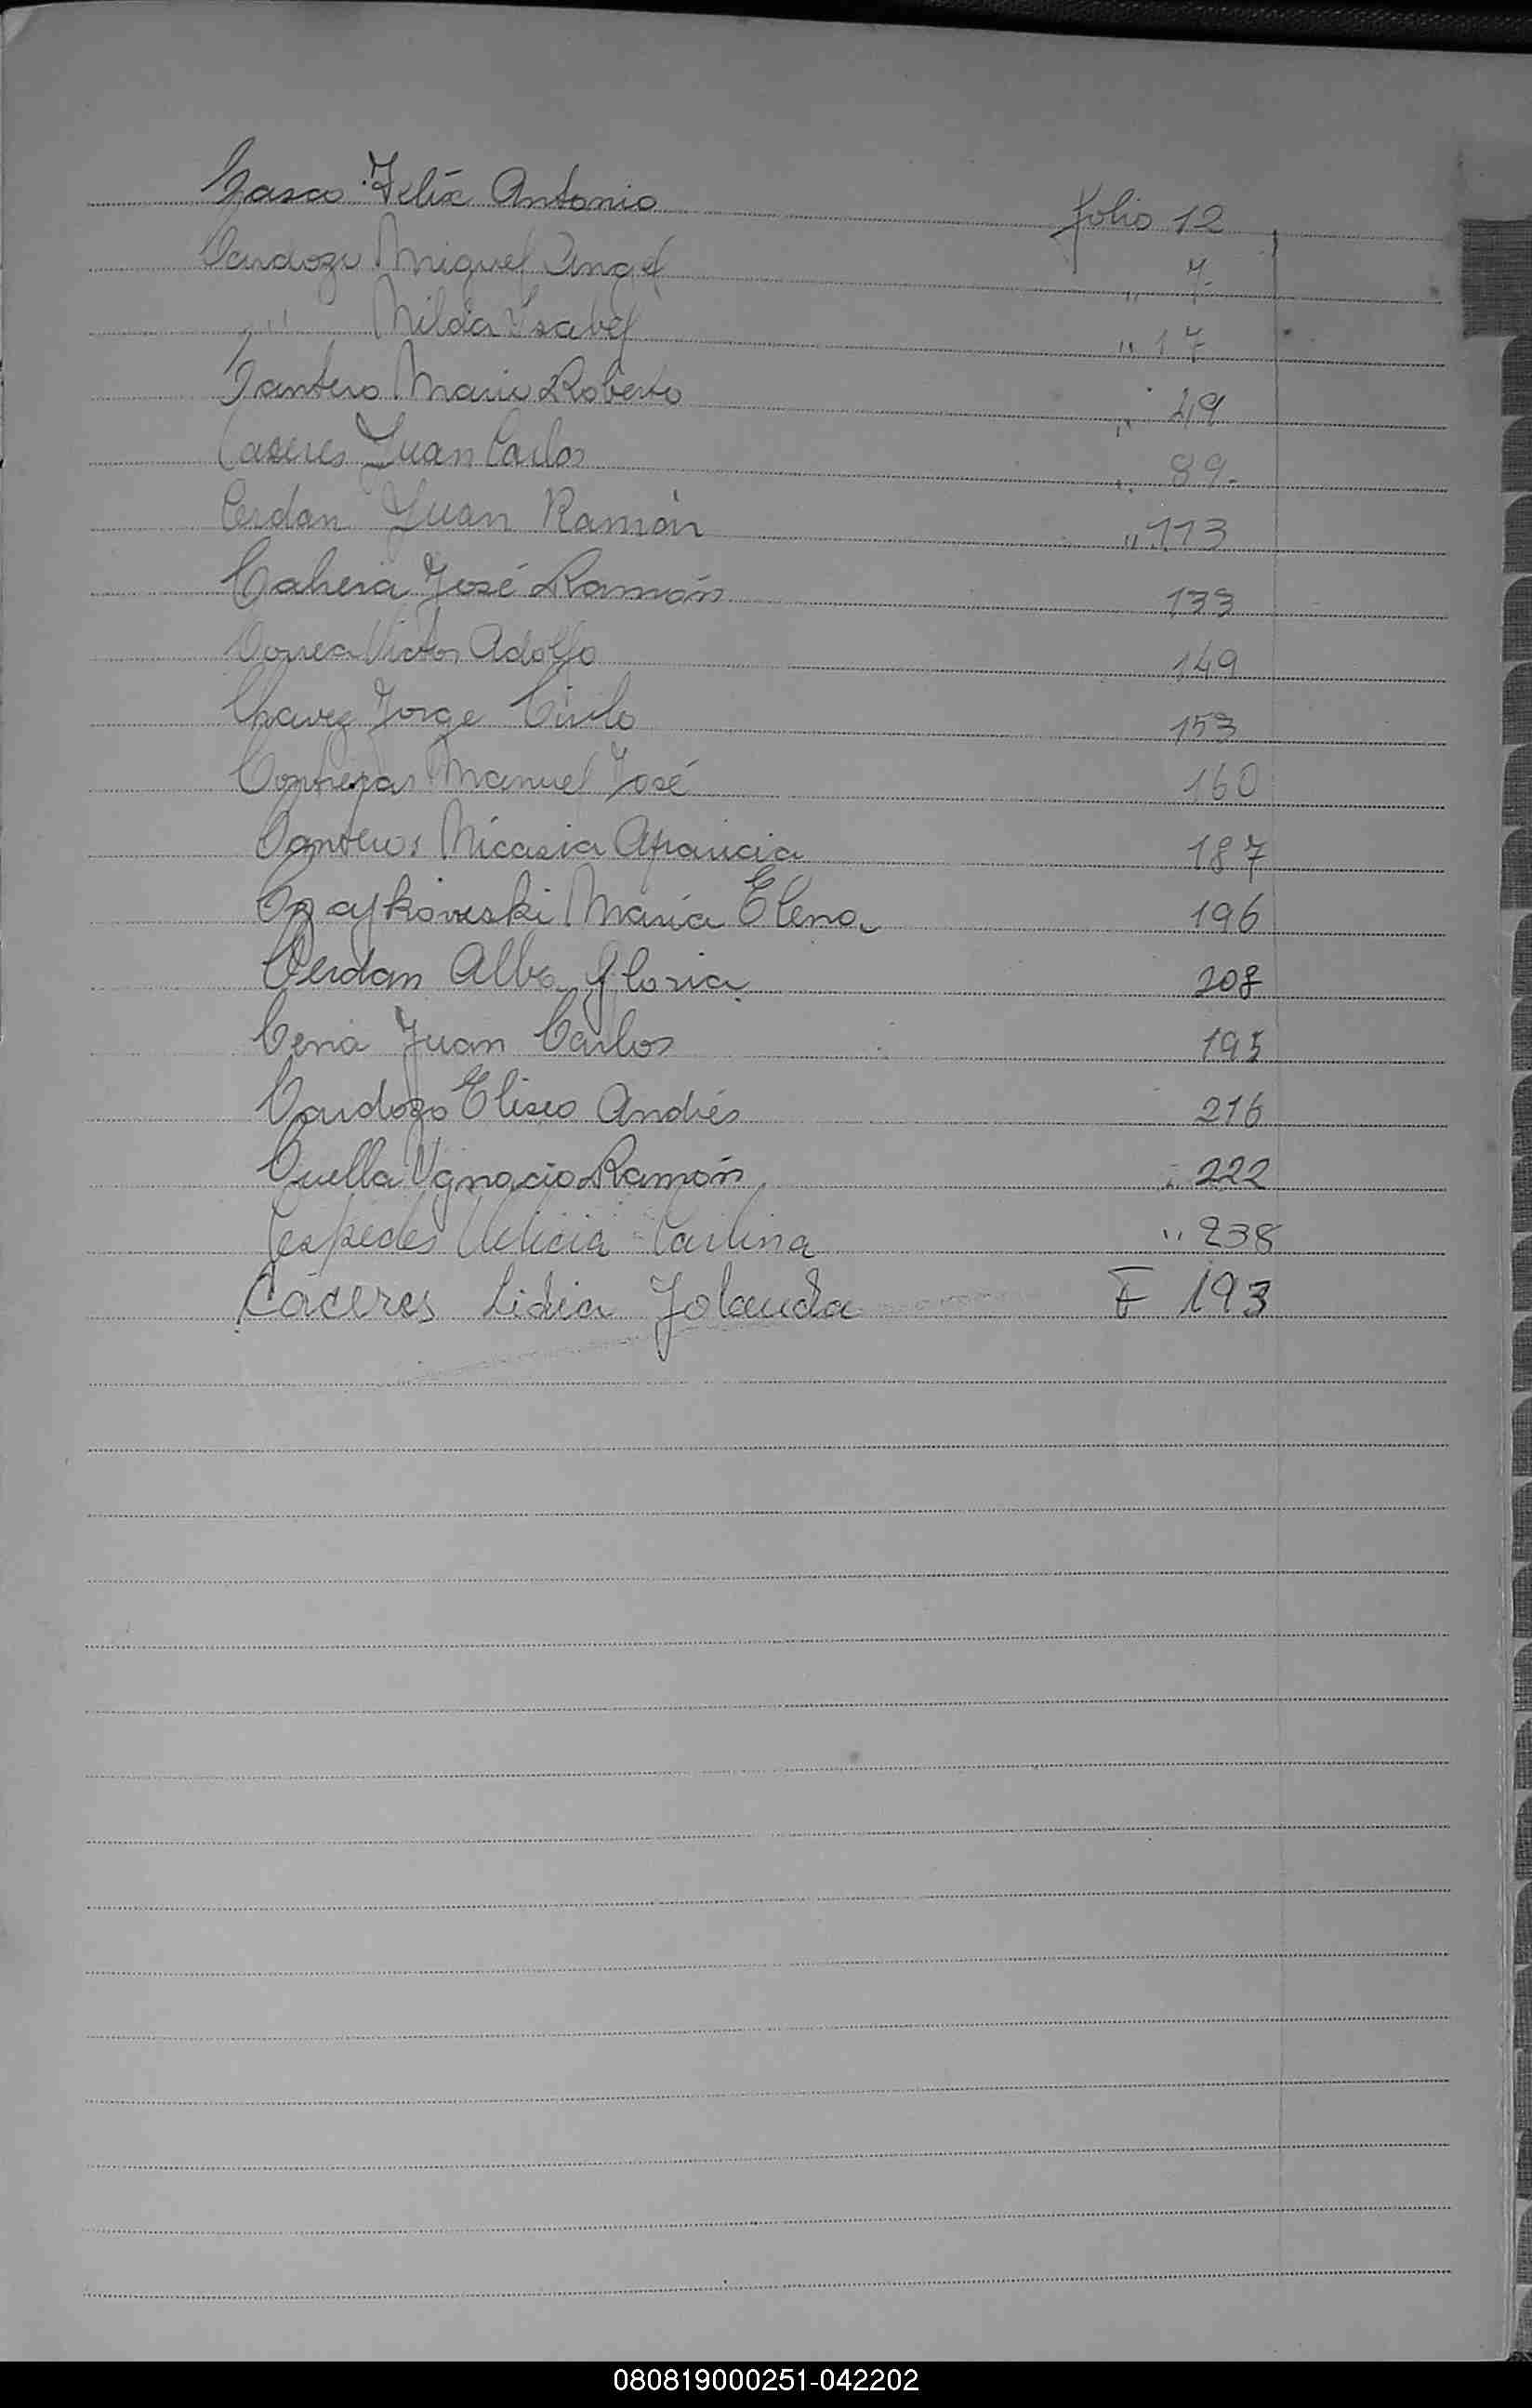 Casco Felix Antonio folio 12
Cardozo Miguel Angel " 7-
" Nilda Ysabel " 17
Cantero Mario Roberto " 49
Caceres Juan Carlos " 89-
Cerdan Juan Ramón " 113
José Ramón 133
Correa Victor Adolfo 149
Chavez Jorge Cirilo 153
Contreras Manuel José 160
Canteros Nicasia Aparicia 187
Czajkoveski Maria Elena 196
Cerdan Alba Gloria 208
Cena Juan Carlos 195
Cardozo Eliseo Andrés 216
Cuella Ygnacio Ramón " 222
Cespedes Carlina " 238
Cáceres Lidia Jolanda F 193
080819000251-042202